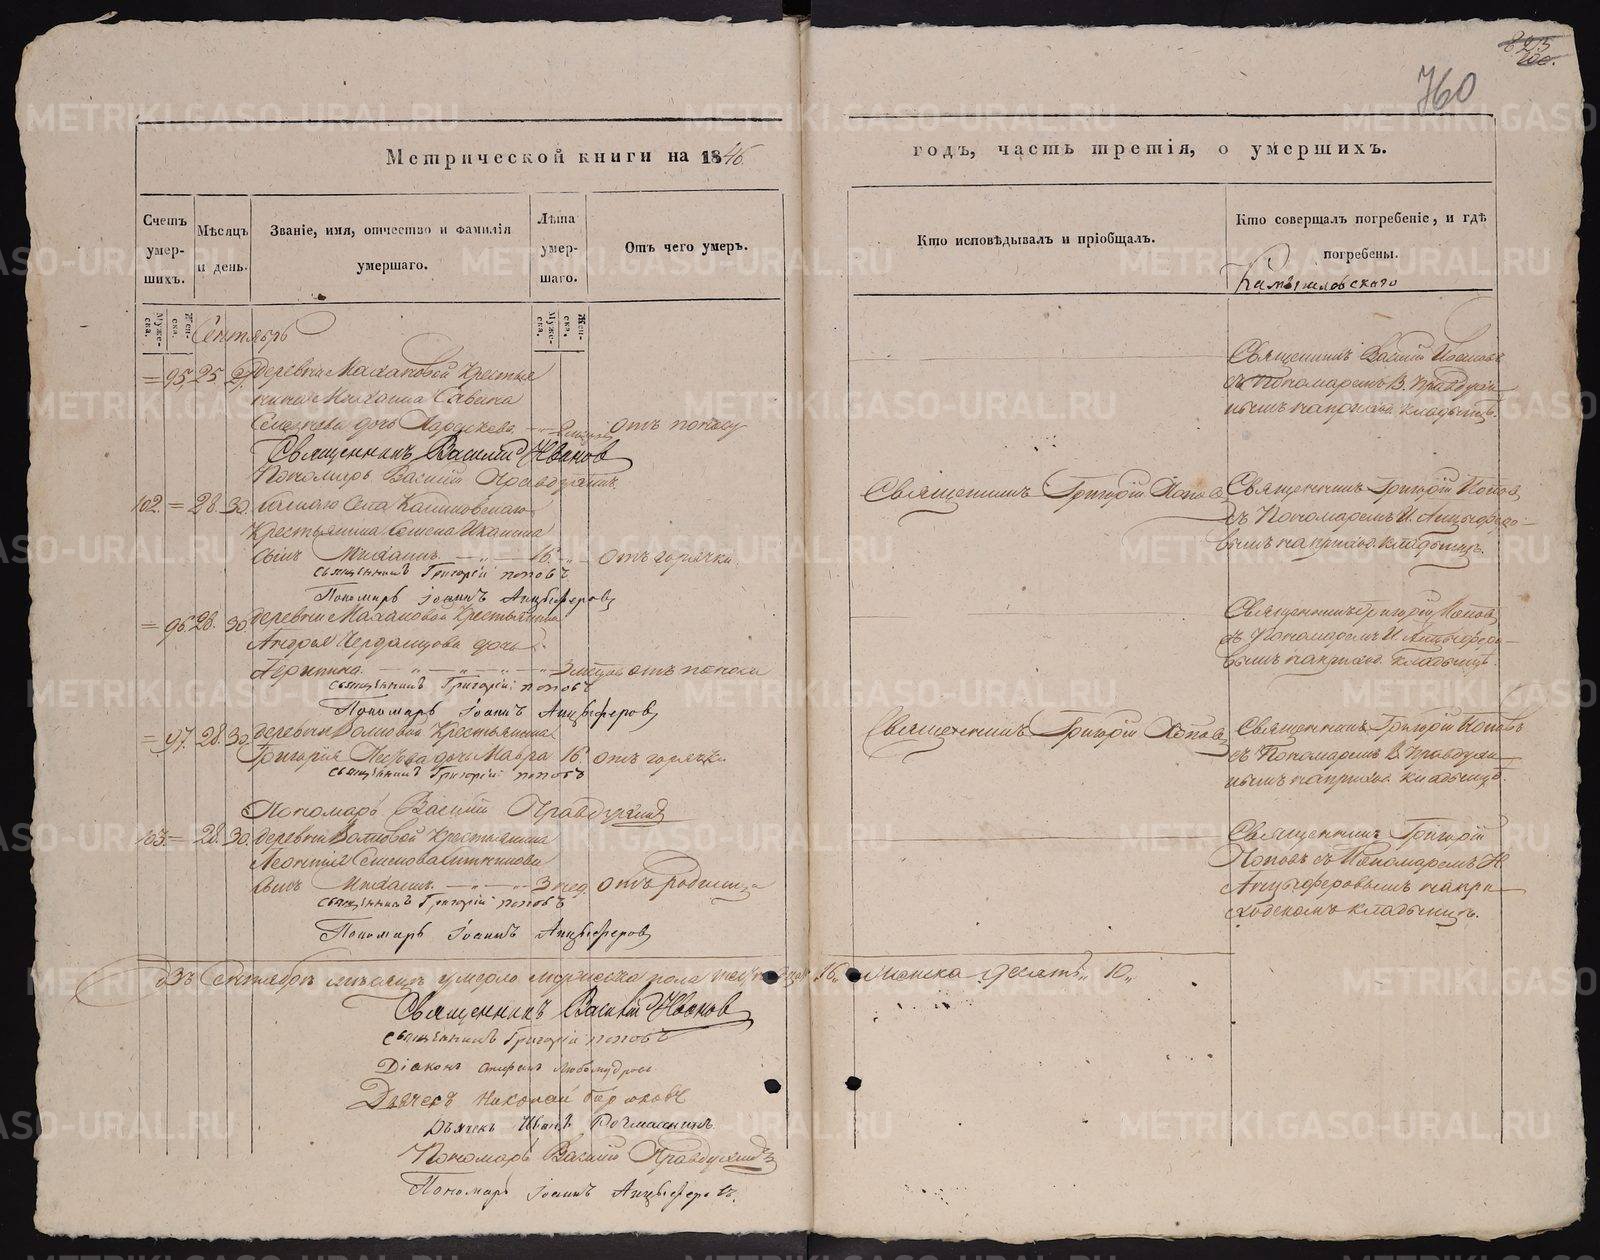 823
200.
760
Метрической книги на 1846
годъ, часть третія, о умершихъ.
Счетъ умер-шихъ.
Мѣсяцъ и день.
Званіе, имя, отчество и фамилія умершаго.
Лѣта умер-шаго.
Отъ чего умеръ.
Кто исповѣдывалъ и пріобщалъ.
Кто совершалъ погребеніе, и гдѣ погребены.
Камышловскаго
Муже-ска.
Жен-ска.
Муже-ска.
Жен-ска.
Сентябрь
= 95 25 27 деревни Малановой Крестья
нина Михаила Савина
дочь отъ поносу
Священникъ Василій Ивановъ
съ Пономаремъ В. Правдухи
нымъ на приход. кладбищѣ.
Священникъ Василій Ивановъ
Пономарь Василій Правдухинъ
102. = 28. 30. Села Калиновскаго
Крестьянина Семена
сынъ Михаилъ. 16. отъ горячки.
Священникъ Григорій Поповъ
Священникъ Григорій Поповъ
съ Пономаремъ И. Анцыферо-
вымъ на приход. кладбищѣ.
священникъ Григорій поповъ
Пономарь Іоаннъ Анцыферовъ
= 96 28. 30. деревни Малановой Крестьянина
Андрея Черданцова дочь
отъ поноса
Священникъ Григорій Поповъ
съ Пономаремъ И. Анцыферо-
вымъ на приход. кладбищѣ.
священникъ Григорій поповъ
Пономарь Іоаннъ Анцыферовъ
= 97. 28. 30. деревни Волковой Крестьянина
Григорія дочь Мавра 16. отъ горячки
Священникъ Григорій Поповъ
Священникъ Григорій Поповъ
съ Пономаремъ В. Правдухи
нымъ на приход. кладбищѣ.
священникъ Григорій поповъ
Пономарь Василій Правдухинъ
103. = 28. 30. деревни Волковой Крестьянина
Леонтія Семенова Ситникова
сынъ Михаилъ. 3 нед. отъ родимца
Священникъ Григорій
Поповъ съ Пономаремъ И.
Анцыферовымъ на при
ходскомъ кладбищѣ.
священникъ Григорій поповъ
Пономарь Іоаннъ Анцыферовъ
Въ Сентябрѣ мѣсяцѣ умерло мужеска пола 16, женска десять „10„
Священникъ Василій Ивановъ
священникъ Григорій поповъ
Діаконъ Любомудровъ
Дьячекъ Николай
Дьячекъ Иванъ
Пономарь Василій Правдухинъ
Пономарь Іоаннъ Анцыферовъ.
METRIKI.GASO-URAL.RU